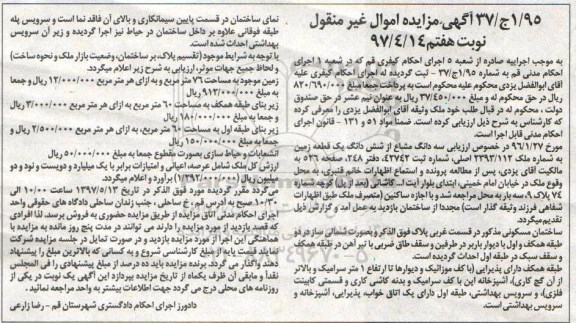 ۳۷/ج۱/۹۵ آگهی مزایده اموال غیر منقول
نوبت هفتم ۹۷/۴/۱۴
به موجب اجراییه صادره از شعبه ۵ اجرای احکام کیفری قم که در شعبه ۱ اجرای
احکام مدنی قم به شماره ۳۷/ج۱/۹۵ - ثبت گردیده له اجرای احکام کیفری علیه
آقای ابوالفضل یزدی محکوم علیه محکوم است به پرداخت جمعا مبلغ ۸۲۰/۶۹۰/۰۰۰
ریال در حق محکوم له و مبلغ ۳۷/۴۵۰/۰۰۰ ریال به عنوان نیم عشر در حق صندوق
دولت، محکوم له در قبال طلب خود ملک وثیقه آقای ابوالفضل یزدی را معرفی کرده
که کارشناس به شرح ذیل ارزیابی کرده است. ضمنا مواد ۵۱ و ۱۳۱ - قانون اجرای
احکام مدنی قابل اجرا است.
مورخ ۹۶/۱/۲۷ در خصوص ارزیابی سه دانگ مشاع از شش دانگ یک قطعه زمین
به شماره ملک ۲۳۹۲/۱۱۲ اصلی، شماره ثبت ۴۷۷۴۲ دفتر ۲۴۸، صفحه ۵۲۶ به
مالکیت آقای یزدی، پس از مطالعه پرونده و استماع اظهارات خانم قنبری، به محل
وقوع ملک در خیابان امام خمینی، ابتدای بلوار آیت ا... کاشانی (بعد از پل) کوچه شماره
۷۴ پلاک ۹، سه بار به محل مراجعه شد و با اجازه ساکنین (متصرف ملک طبق اظهارات
شفاهی فرزند وثیقه گذار است) مجددا از ساختمان بازدید به عمل آمد و گزارش ذیل
تقدیم می‌گردد.
ساختمان مسکونی مذکور در قسمت غربی پلاک فوق الذکر و بصورت شمالی ساز در دو
طبقه همکف و اول با دیوار باربر در طرفین و سقف طاق ضربی با تیر آهن در طبقه همکف
و سقف سبک در طبقه اول احداث گردیده است.
طبقه همکف دارای پذیرایی (با کف موزائیک و دیوارها تا ارتفاع ۱ متر سرامیک و بالاتر
از آن گچ کاری)، آشپزخانه اپن با کف سرامیک و بدنه کاشی کاری و قسمتی کابینت
فلزی)، و سرویس بهداشتی، طبقه اول دارای یک اتاق خواب، پذیرایی، آشپزخانه و
سرویس بهداشتی است.
نمای ساختمان در قسمت پایین سیمانکاری و بالای آن فاقد نما است و سرویس پله
طبقه فوقانی علاوه بر داخل ساختمان در حیاط نیز اجرا گردیده و زیر آن سرویس
بهداشتی احداث شده است.
با توجه به شرایط موجود (تقسیم پلاک، بر ساختمان، وضعیت بازار ملک و نحوه ساخت)
و لحاظ جمیع جهات موثر، ارزیابی به شرح زیر اعلام میگردد.
زمین موجود به مساحت ۷۶ متر مربع و به ازای هر متر مربع ۱۲/۰۰۰/۰۰۰ ریال و جمعا
به مبلغ ۹۱۲/۰۰۰/۰۰۰ ریال
زیر بنای طبقه همکف به مساحت ۶۰ متر مربع به ازای هر متر مربع ۳/۰۰۰/۰۰۰ ریال
و جمعا به مبلغ ۱۸۰/۰۰۰/۰۰۰ ریال
زیر بنای طبقه اول به مساحت ۶۰ متر مربع، به ازای هر متر مربع ۲/۵۰۰/۰۰۰ ریال و
جمعا به مبلغ ۱۵۰/۰۰۰/۰۰۰ ریال
انشعابات و حیاط سازی بصورت مقطوع جمعا به مبلغ ۵۰/۰۰۰/۰۰۰ ریال
ارزش کل ملک شامل عرصه، اعیانی و امتیازات برابر با یک میلیارد و دویست و نود و دو
میلیون ریال (۱/۲۹۲/۰۰۰/۰۰۰) برآورد و اعلام میگردد.
می گردد مقرر گردیده مورد فوق الذکر در تاریخ ۱۳۹۷/۵/۱۳ ساعت ۱۰/۰۰ الی
۱۰/۳۰ صبح به آدرس قم، خ ساحلی، جنب زندان ساحلی دادگاه های حقوقی واحد
اجرای احکام مدنی اتاق مزایده از طریق مزایده حضوری به فروش برسد. لذا افرادی
که قصد بازدید از مورد مزایده را دارند می توانند در مدت پنج روز مانده به مزایده با
هماهنگی این اجرا از مورد مزایده بازدید و در صورت تمایل در جلسه مزایده شرکت
نمایند. قیمت پایه از مبلغ کارشناسی شروع و به کسانی که بالاترین مبلغ را پیشنهاد
دهند واگذار می گردد. برنده مزایده باید ده درصد از مبلغ پیشنهادی را فی المجلس
نقداً و مابقی آن ظرف یکماه از تاریخ مزایده بپردازد این آگهی یک نوبت در یکی از
روزنامه های محلی درج می گردد جهت اطلاعات بیشتر به واحد مراجعه نمائید.
دادورز اجرای احکام دادگستری شهرستان قم - رضا زارعی